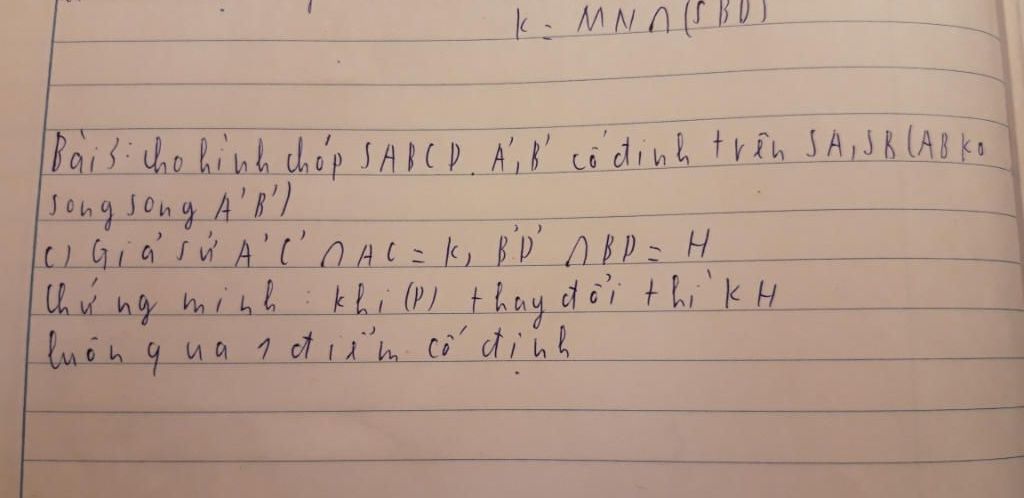 K = MN ∩ (SBD)
Bài 3: cho hình chóp SABCD. A', B' cố định trên SA, SB (AB ko
song song A'B')
c) Giả sử A'C' ∩ AC = K, B'D' ∩ BD = H
Chứng minh: khi (P) thay đổi thì KH
luôn qua 1 điểm cố định